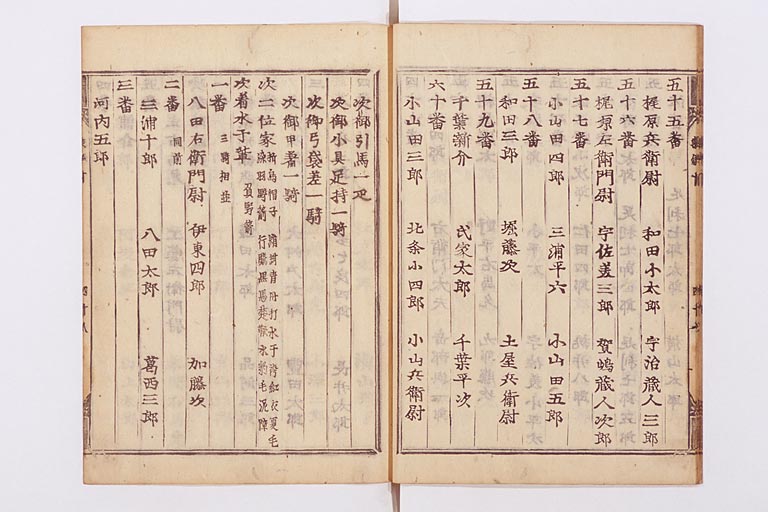 五十五番
梶原兵衛尉 和田小太郎 宇治蔵人三郎
五十六番
梶原左衛門尉 宇佐美三郎 賀嶋蔵人次郎
五十七番
小山田四郎 三浦平六 小山田五郎
五十八番
和田三郎 堀藤次 土屋兵衛尉
五十九番
千葉新介 氏家太郎 千葉平次
六十番
小山田三郎 北条小四郎 小山兵衛尉
次御引馬一疋
次御小具足持一騎
次御弓袋差一騎
次御甲着一騎
次二位家 折烏帽子
次着水干輩 負野箭
一番 三騎相並
八田右衛門尉 伊東四郎 加藤次
二番 同前
三浦十郎 八田太郎 葛西三郎
三番
河内五郎